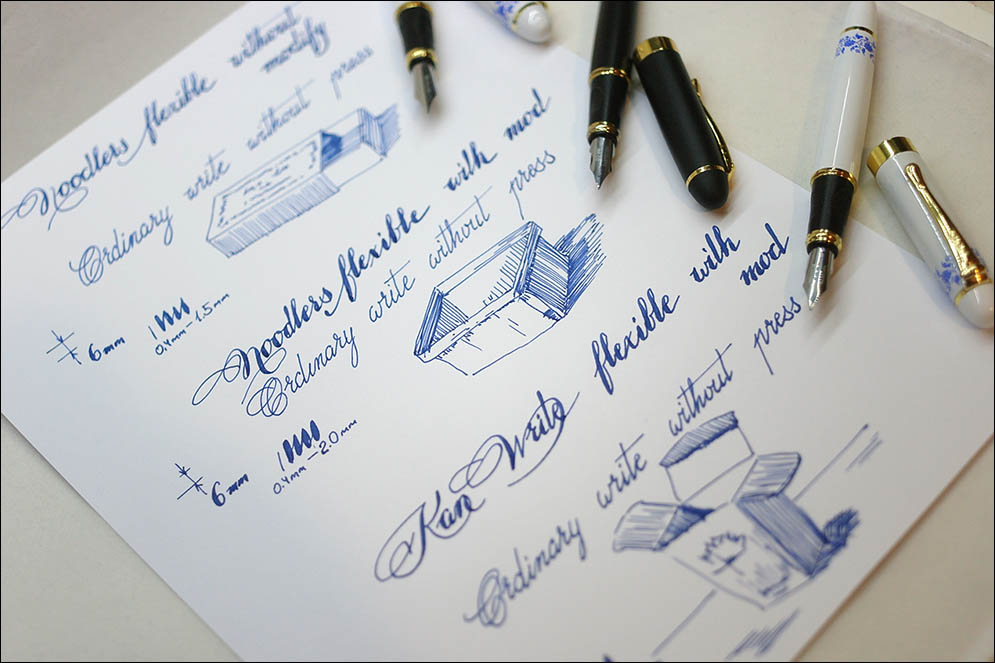 Noodlers flexible without
modify
Ordinary write without press
6mm
0.4mm-1.5mm
Noodlers flexible with mod
Ordinary write without press
6mm
0.4mm-2.0mm
Kan Write flexible with
mod
Ordinary write without press